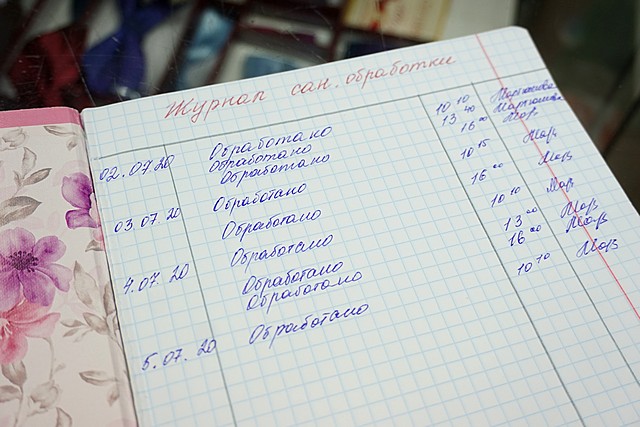 Журнал сан. обработки
02.07.20 Обработано 10 10
Обработано 13 40
Обработано 16 00
03.07.20 Обработано 10 15
Обработано 16 00
4.07.20 Обработано 10 10
Обработано 13 00
Обработано 16 00
5.07.20 Обработано 10 10